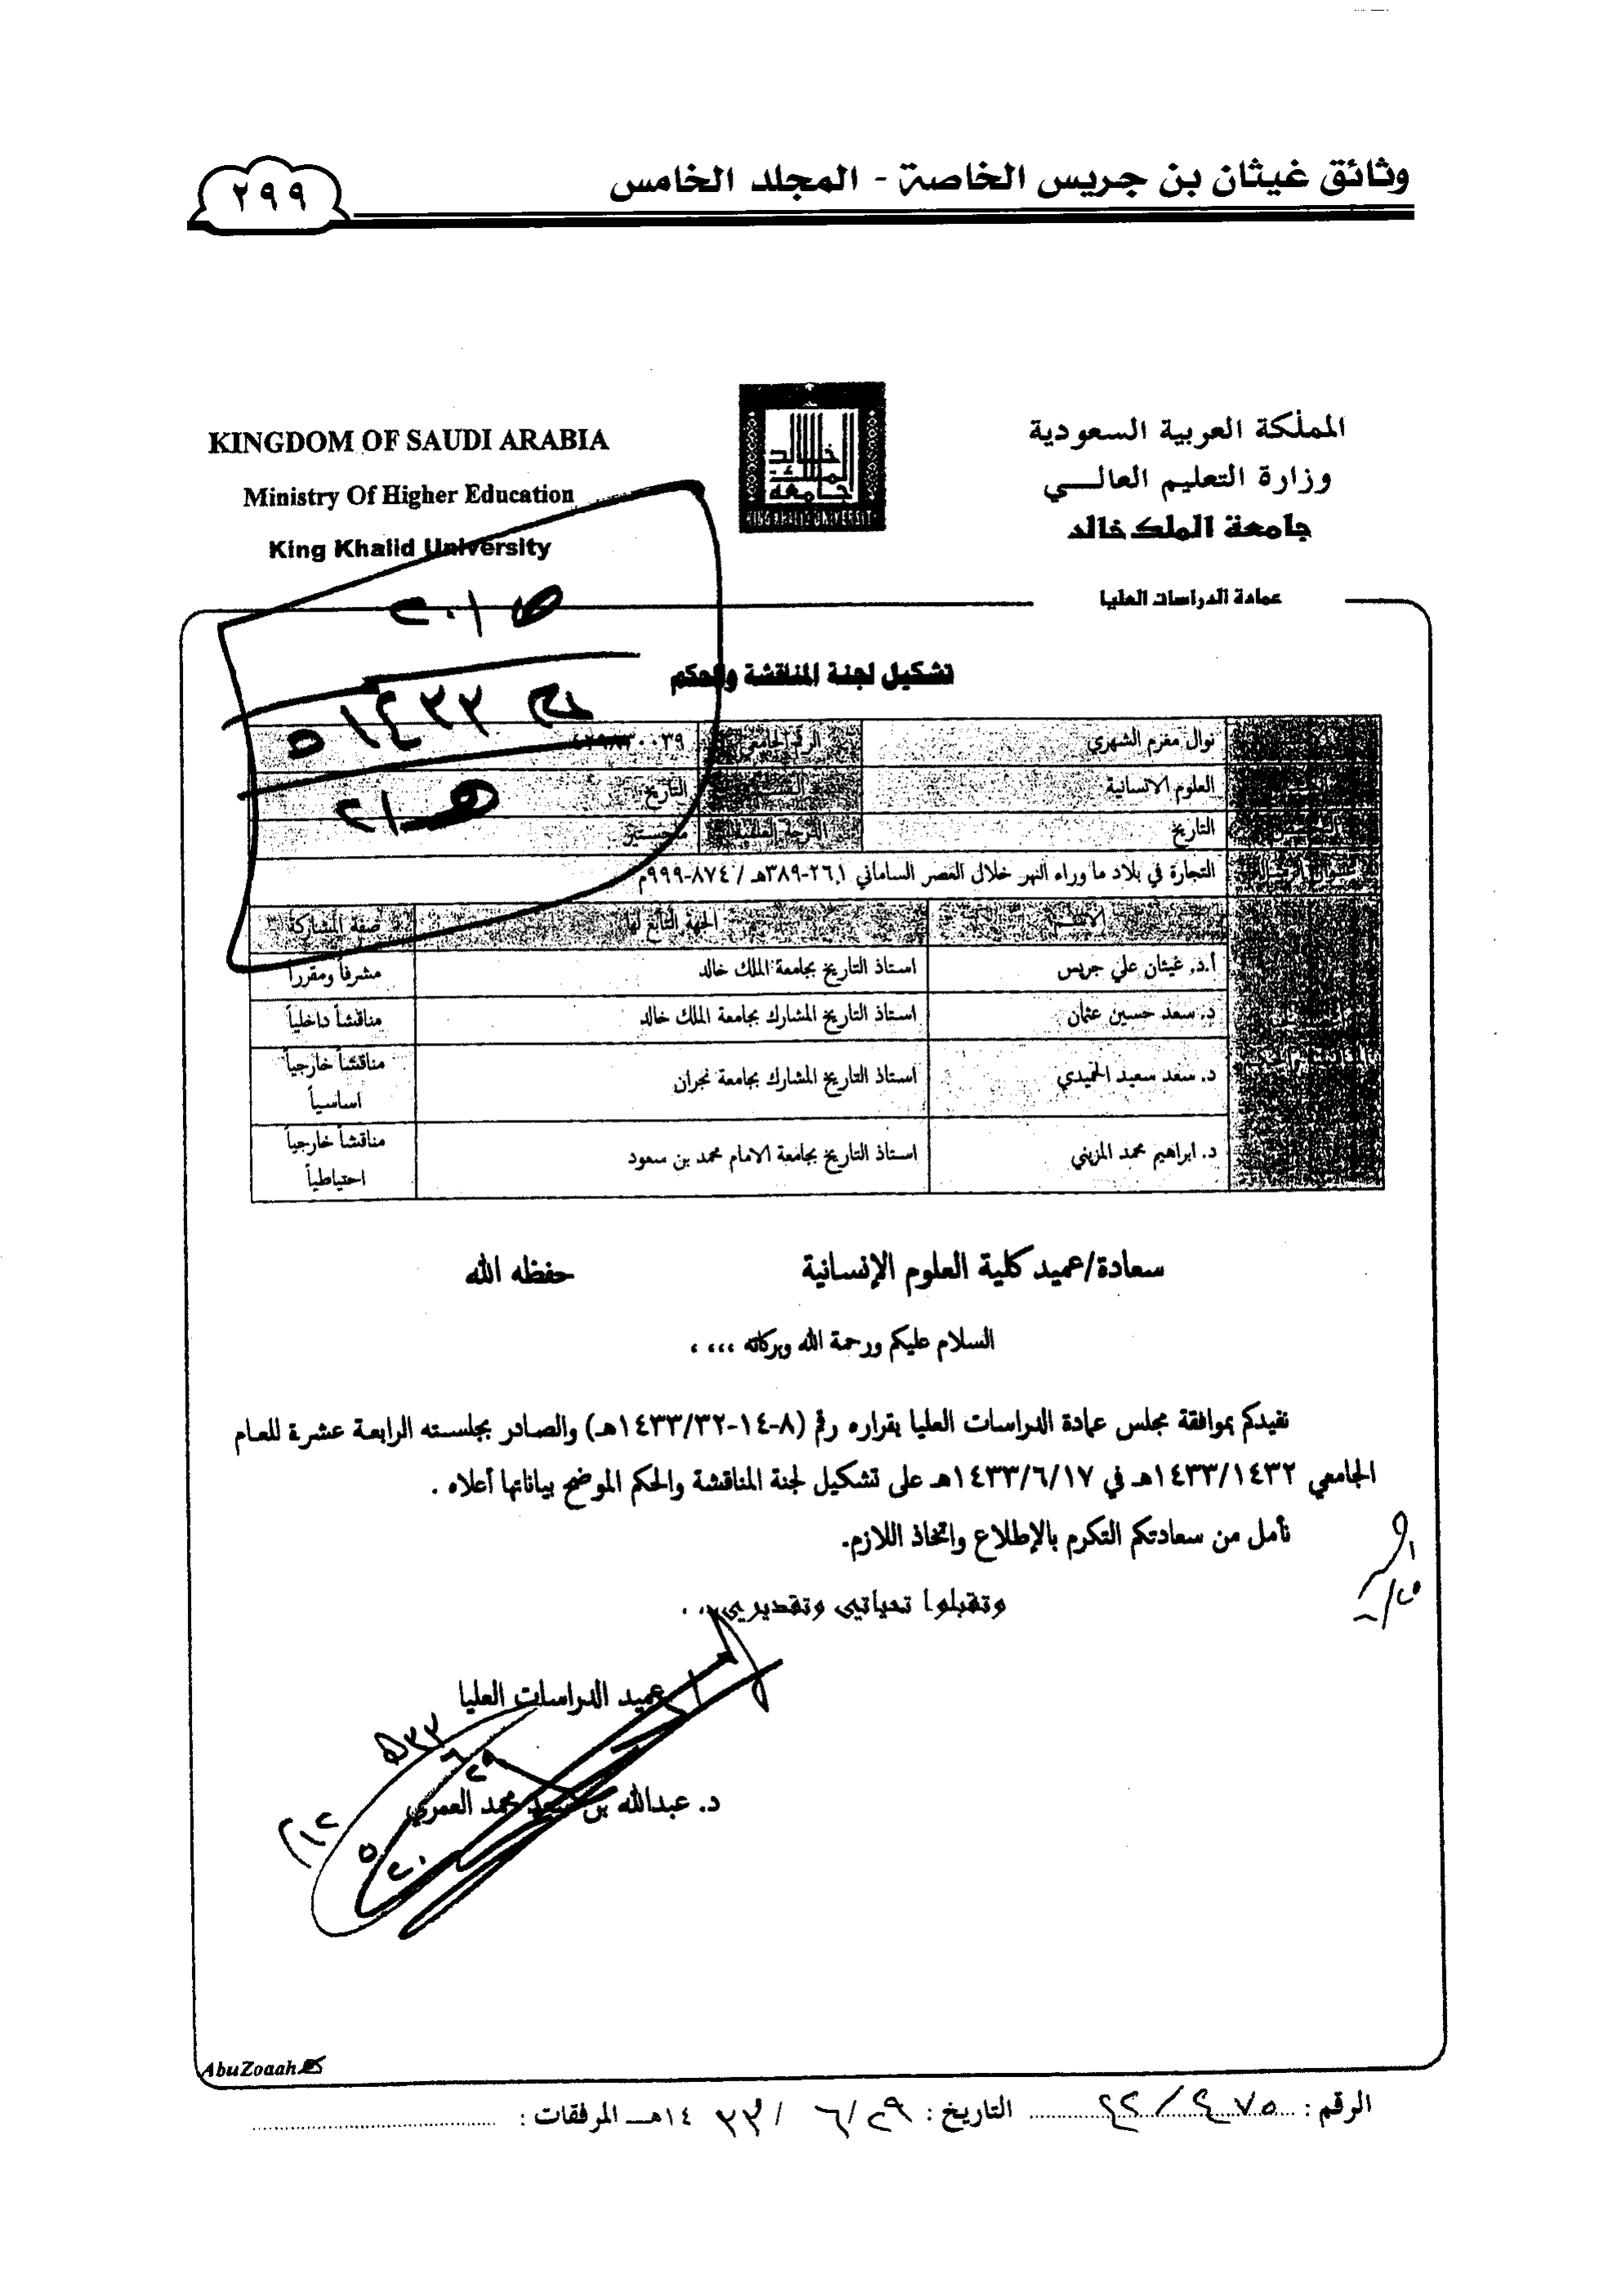 وثائق غيثان بن جريس الخاصة - المجلد الخامس
٢٩٩
المملكة العربية السعودية
وزارة التعليم العالـــي
جامعة الملك خالد
عمادة الدراسات العليا
KINGDOM OF SAUDI ARABIA
Ministry Of Higher Education
King Khalid University
جامعة الملك خالد
KING KHALID UNIVERSITY
تشكيل لجنة المناقشة والحكم
نوال مغرم الشهري الرقم الجامعي
العلوم الانسانية القسم التاريخ
التاريخ الدرجة العلمية ماجستير
عنوان الرسالة التجارة في بلاد ما وراء النهر خلال العصر الساماني ٢٦١-٣٨٩هـ / ٨٧٤-٩٩٩م
الاسم الجهة التابع لها صفة المشاركة
أ.د. غيثان علي جريس استاذ التاريخ بجامعة الملك خالد مشرفاً ومقرراً
د. سعد حسين عثمان استاذ التاريخ المشارك بجامعة الملك خالد مناقشاً داخلياً
د. سعد سعيد الحميدي استاذ التاريخ المشارك بجامعة نجران مناقشاً خارجياً اساسياً
د. ابراهيم محمد المزيني استاذ التاريخ بجامعة الامام محمد بن سعود مناقشاً خارجياً احتياطياً
سعادة/عميد كلية العلوم الإنسانية حفظه الله
السلام عليكم ورحمة الله وبركاته ،،،،
نفيدكم بموافقة مجلس عمادة الدراسات العليا بقراره رقم (٨-١٤-١٤٣٣/٣٢هـ) والصادر بجلسته الرابعة عشرة للعام
الجامعي ١٤٣٣/١٤٣٢هـ في ١٤٣٣/٦/١٧هـ على تشكيل لجنة المناقشة والحكم الموضح بياناتها أعلاه .
نأمل من سعادتكم التكرم بالإطلاع واتخاذ اللازم.
وتقبلوا تحياتي وتقديري،،،
عميد الدراسات العليا
د. عبدالله بن سعد محمد العمري
AbuZoaah
الرقم : ٤٧٥/٢٢ التاريخ : ٢٩/ ٦ / ١٤٣٣هـ المرفقات :